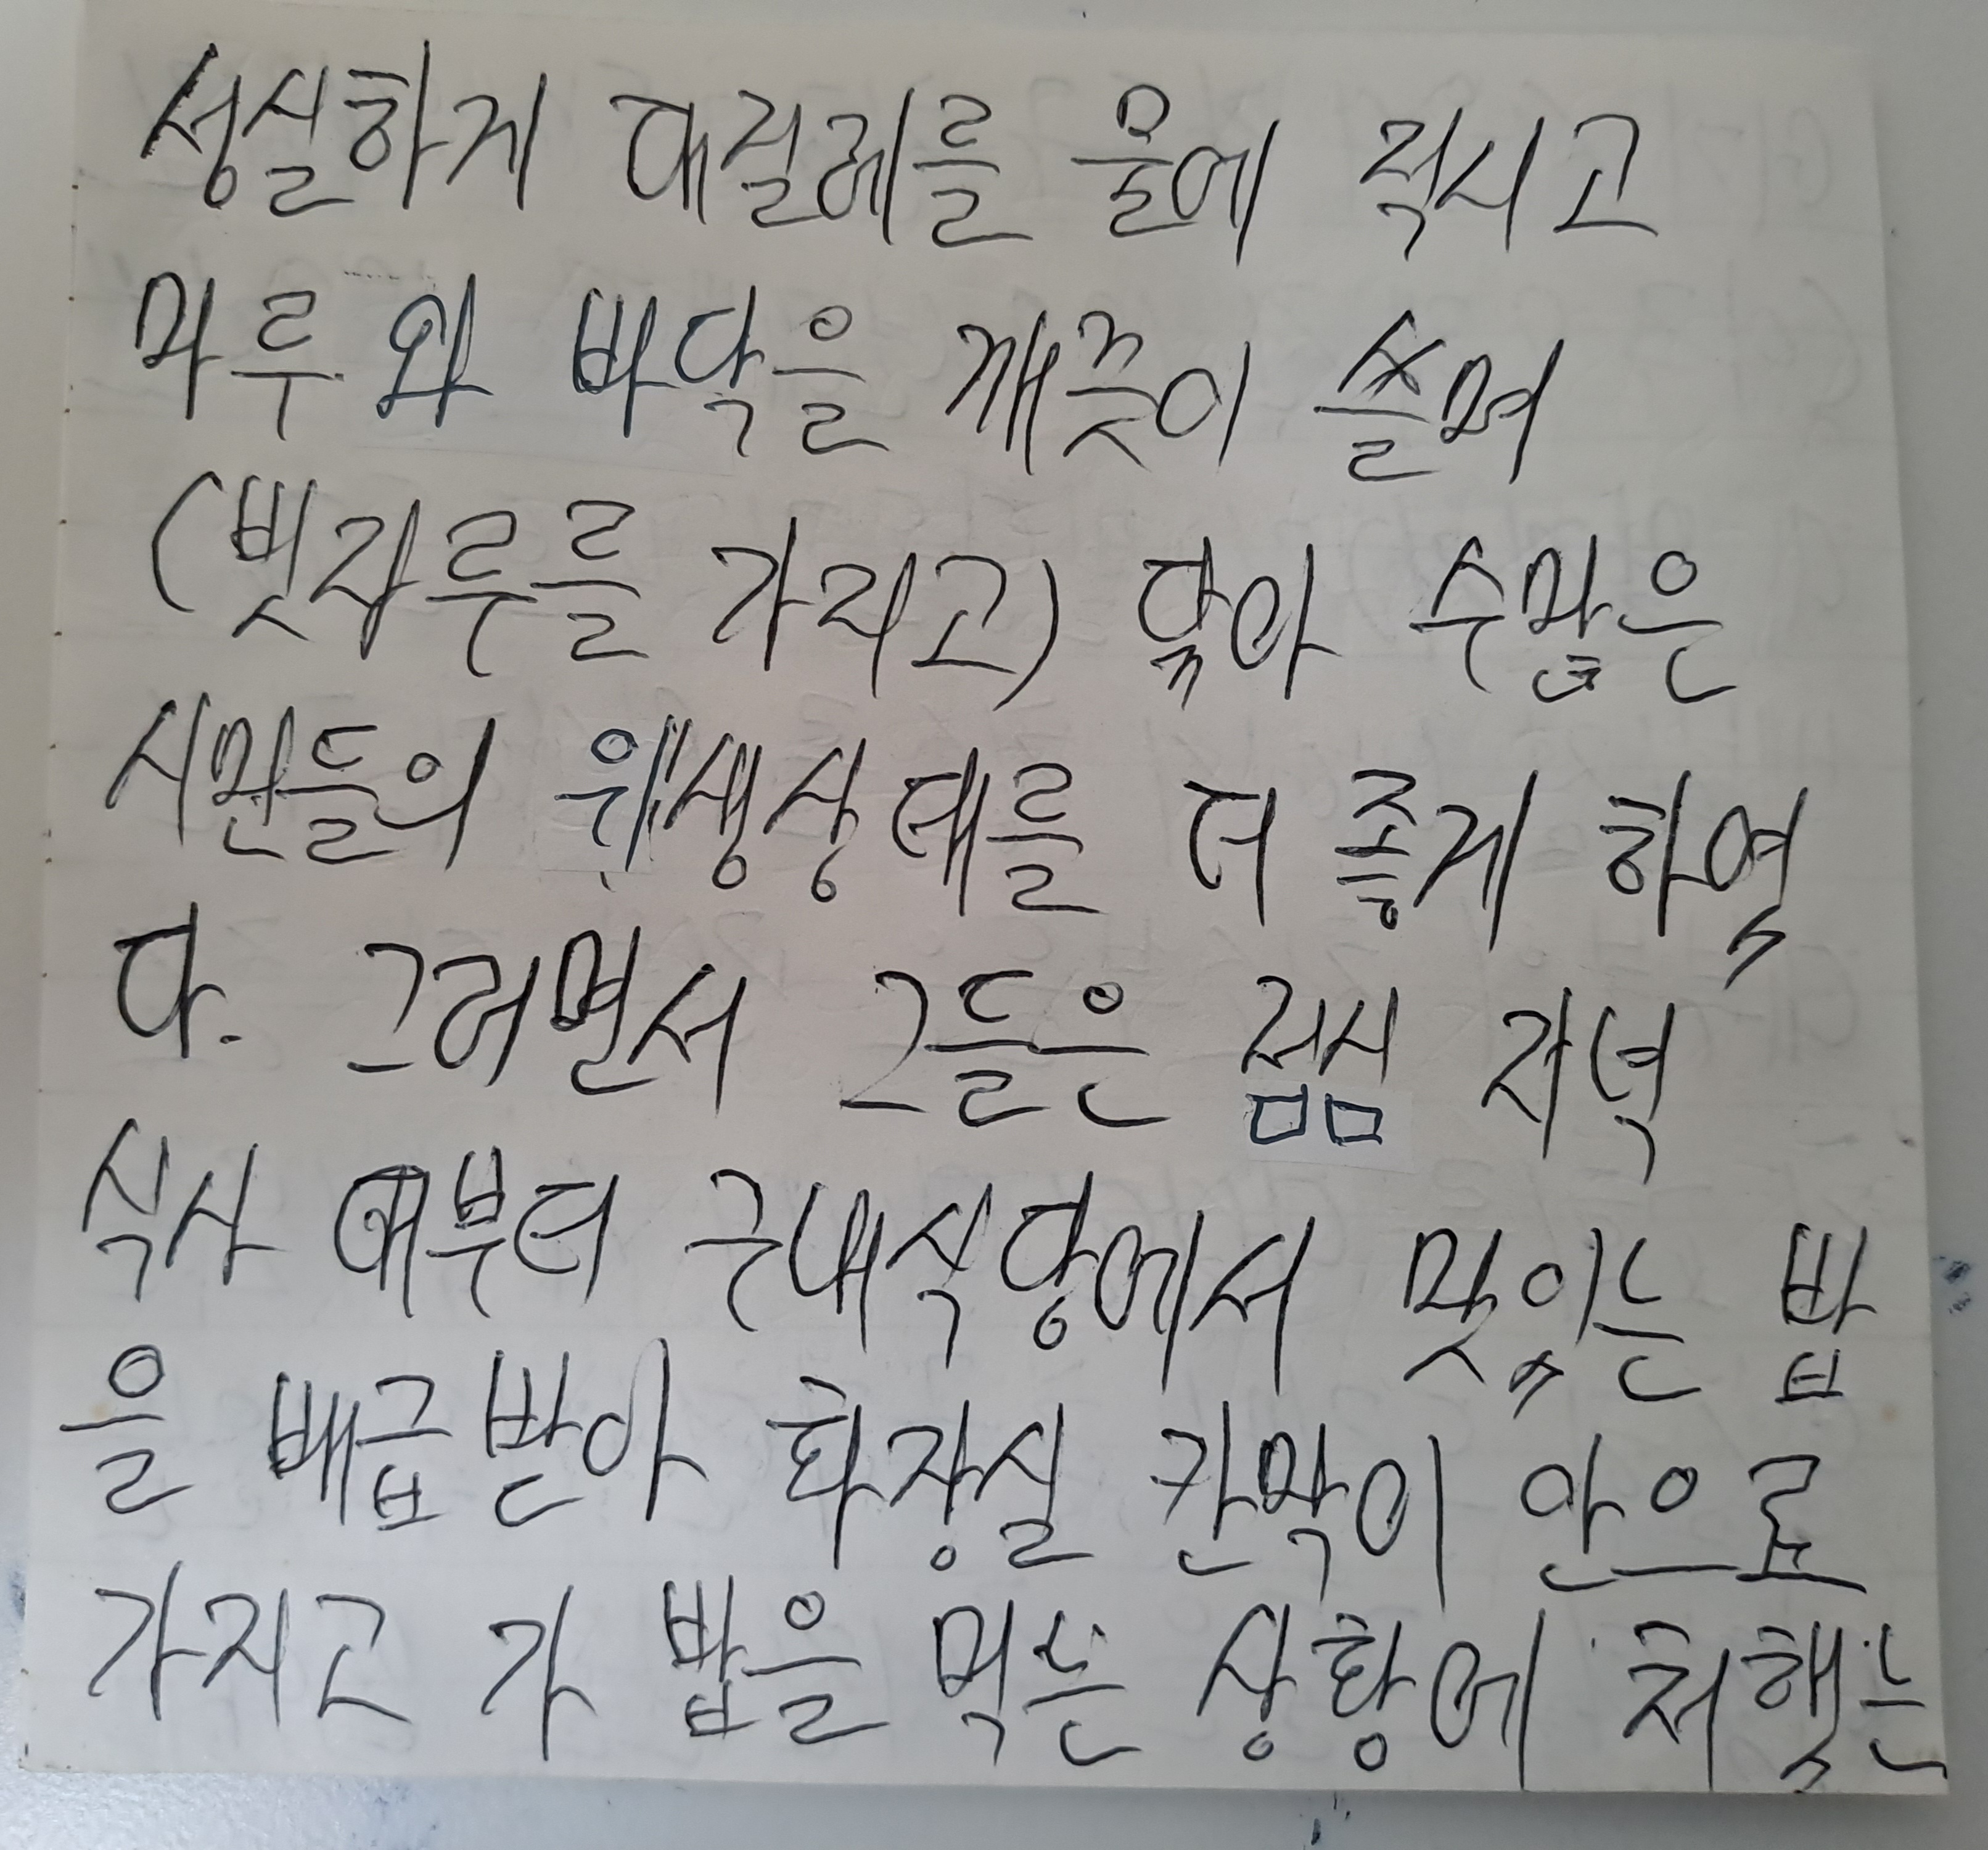 성실하게 대걸레를 물에 적시고
마루와 바닥을 깨끗이 쓸며
(빗자루를 가지고) 닦아 수많은
시민들의 위생상태를 더 좋게 하였
다. 그러면서 그들은 점심 저녁
식사 때부터 구내식당에서 맛있는 밥
을 배급받아 화장실 칸막이 안으로
가지고 가 밥을 먹는 상황에 처했는